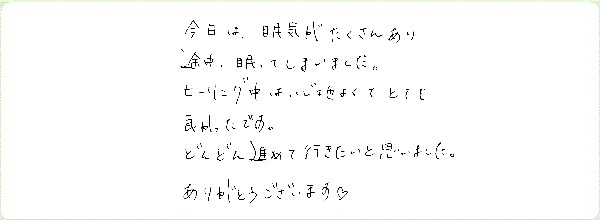 今日は、眠気がたくさんあり
途中、眠ってしまいました。
ヒーリング中は、心地よくてとても
良かったです。
どんどん進めて行きたいと思いました。
ありがとうございます♡